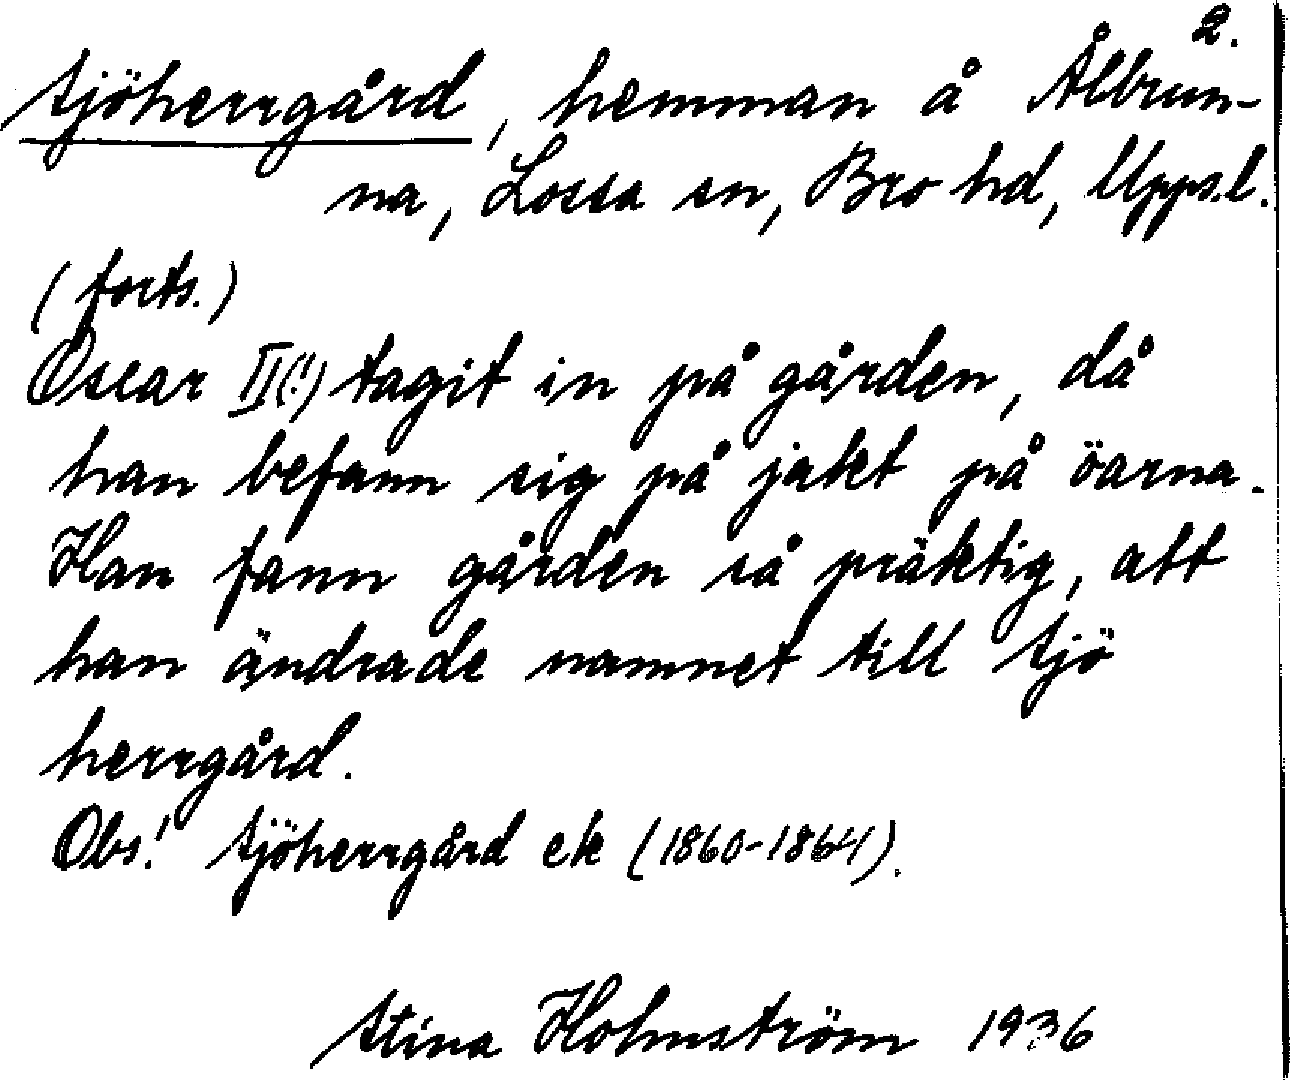 2.
Sjöherrgård, hemman å Ålbrun-
na, Lossa sn, Bro hd, Upps.l.
(forts.)
Oscar II(!) tagit in på gården, då
han befann sig på jakt på öarna.
Han fann gården så präktig, att
han ändrade namnet till Sjö
herrgård.
Obs! Sjöherrgård ek (1860-1864).
Stina Holmström 1936